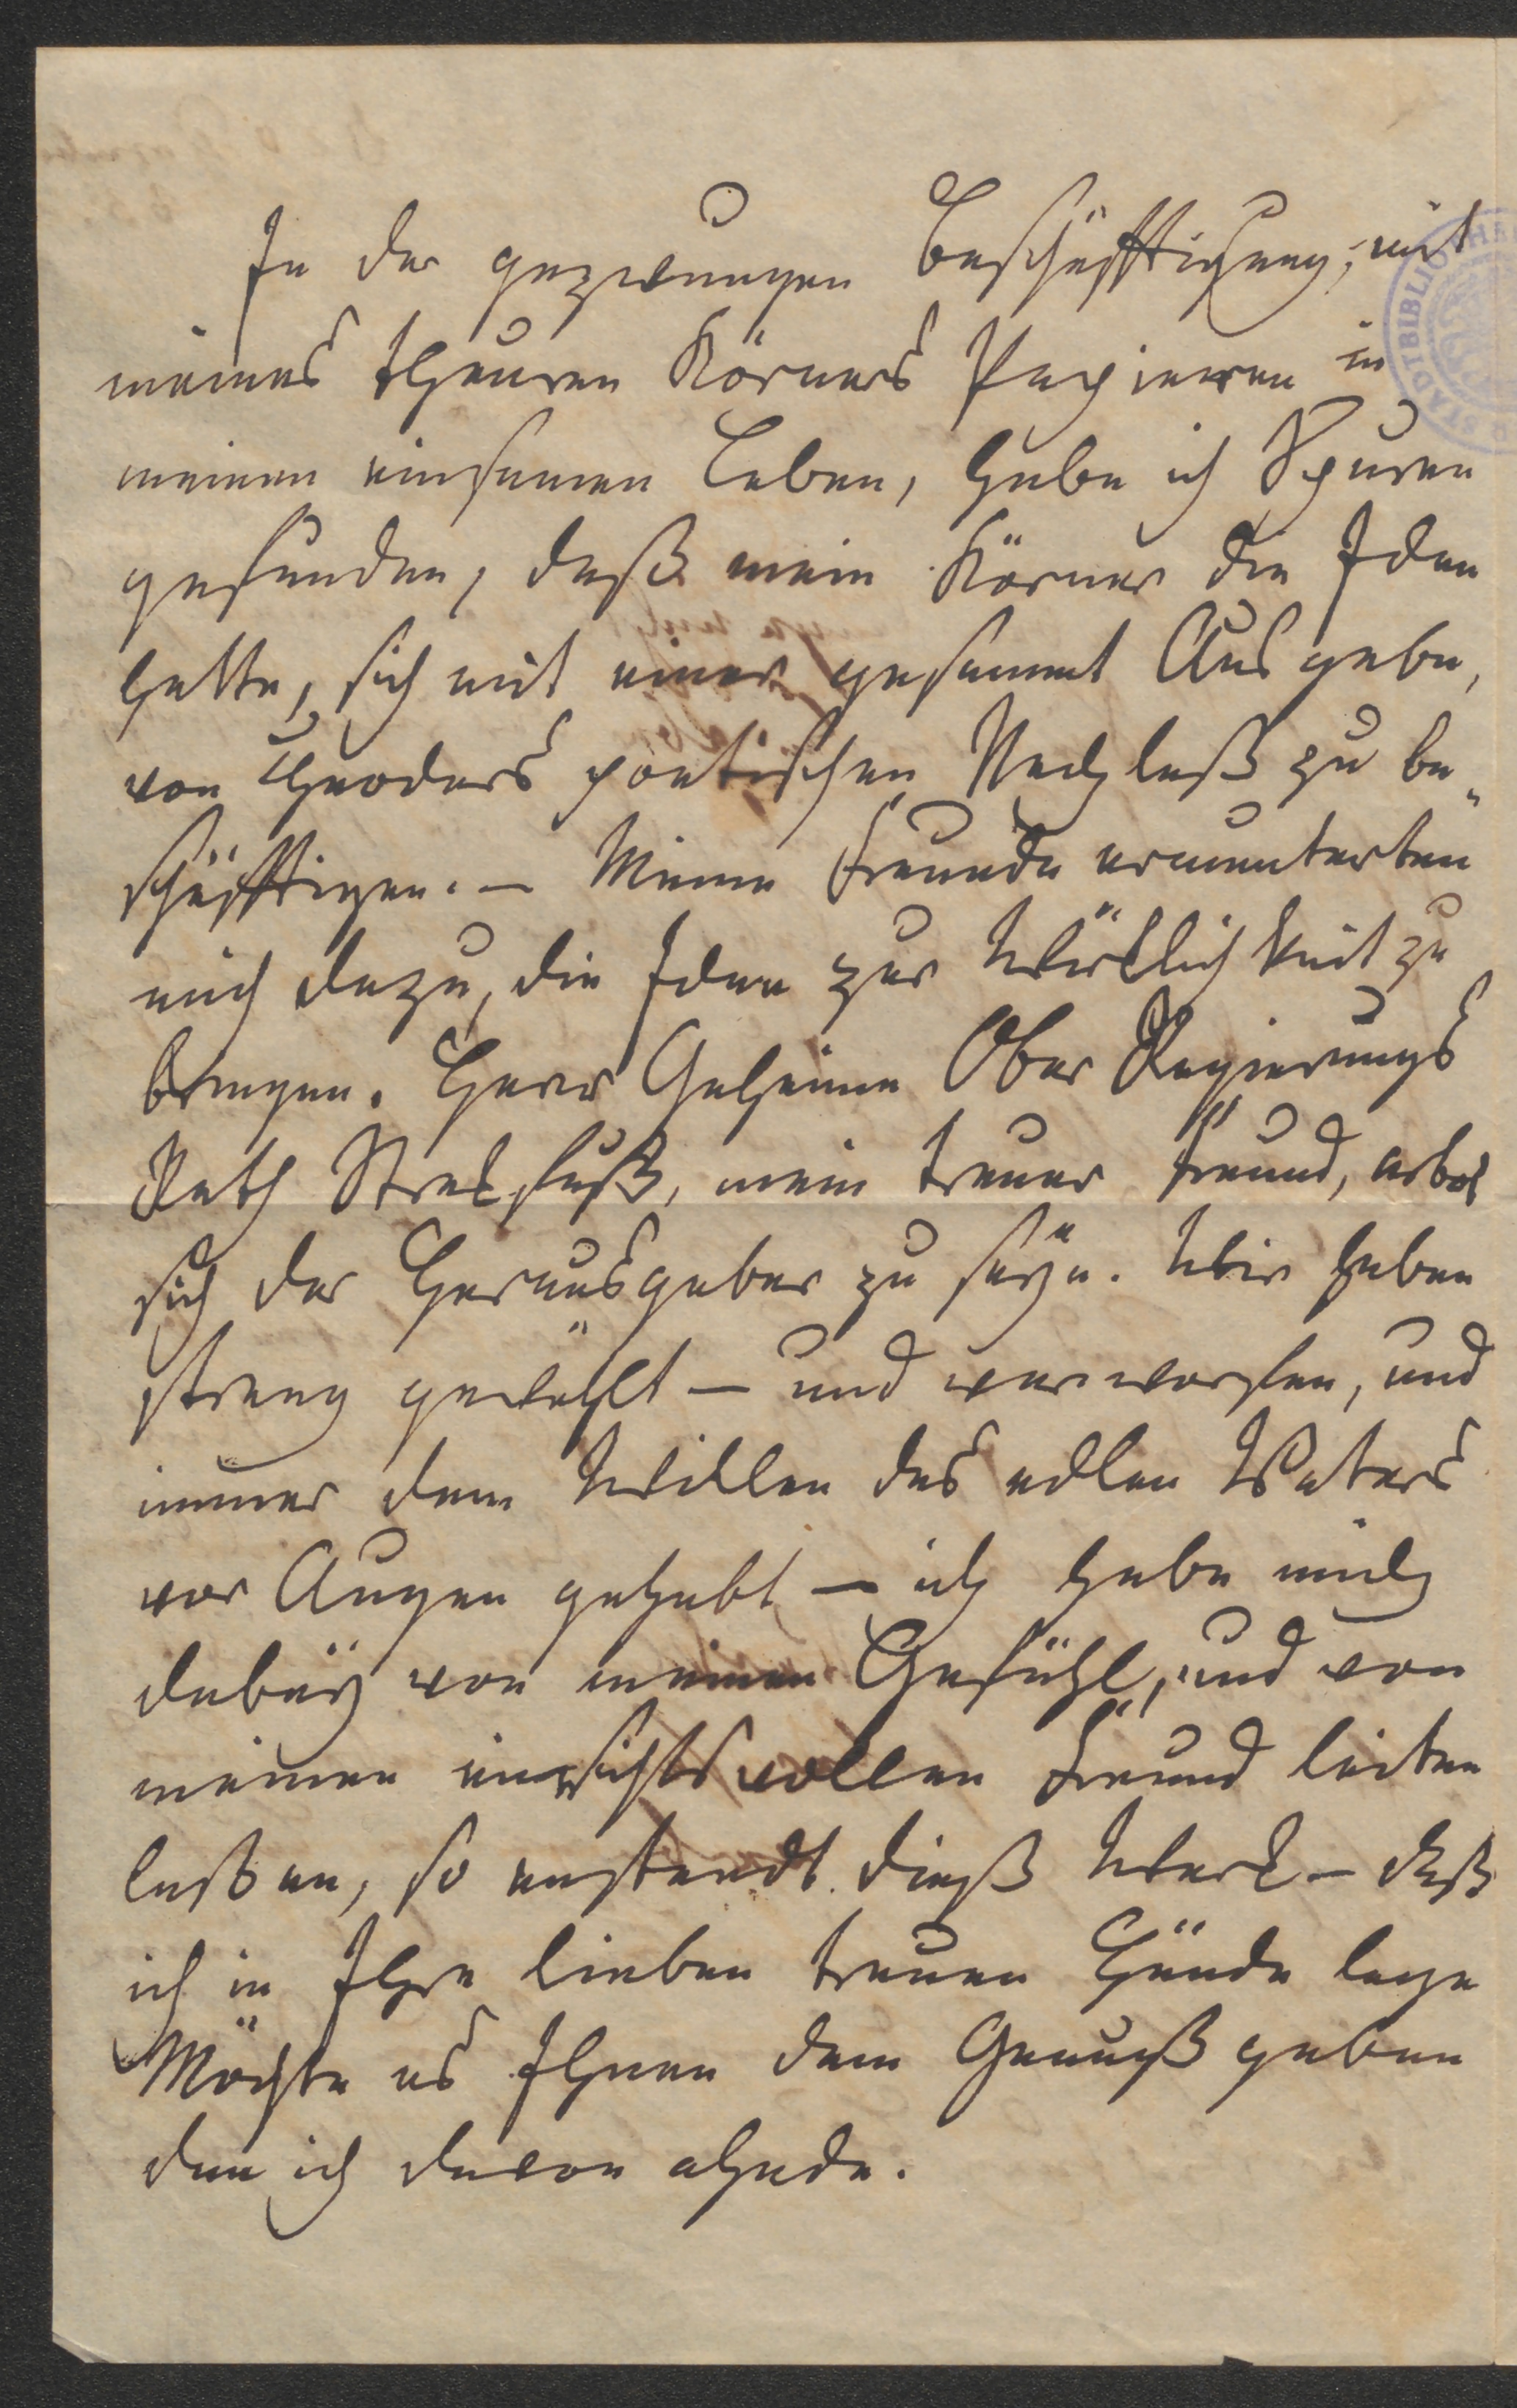 In der gezwungen Beschäfftigung, mit
meines theuren Körners Papieren in
meinem einsamen Leben, habe ich Spuren
gefunden, daß mein Körner die Idee
hatte, sich mit einer gesammt Ausgabe,
von Theodors poetischen Nachlaß zu be„
schäfftigen. — Meine Freunde ermunterten
mich dazu, die Idee zur Wirklichkeit zu
bringen. Herr Geheime Ober Regierungs
Rath Strekfuß, mein treuer Freund, erbot
sich der Herausgeber zu seyn. Wir haben
streng gewählt — und verworfen, und
immer dem Willen des edlen Vaters
vor Augen gehabt — ich habe mich
dabey von meinem Gefühl, und von
meinen einsichtsvollen Freund leiten
lassen, so enstandt dieß Werk — daß
ich in Ihre lieben treuen Hände lege
Möchte es Ihnen dem Genuß geben
den ich davon ahnde.
STADTBIBLIOTHEK